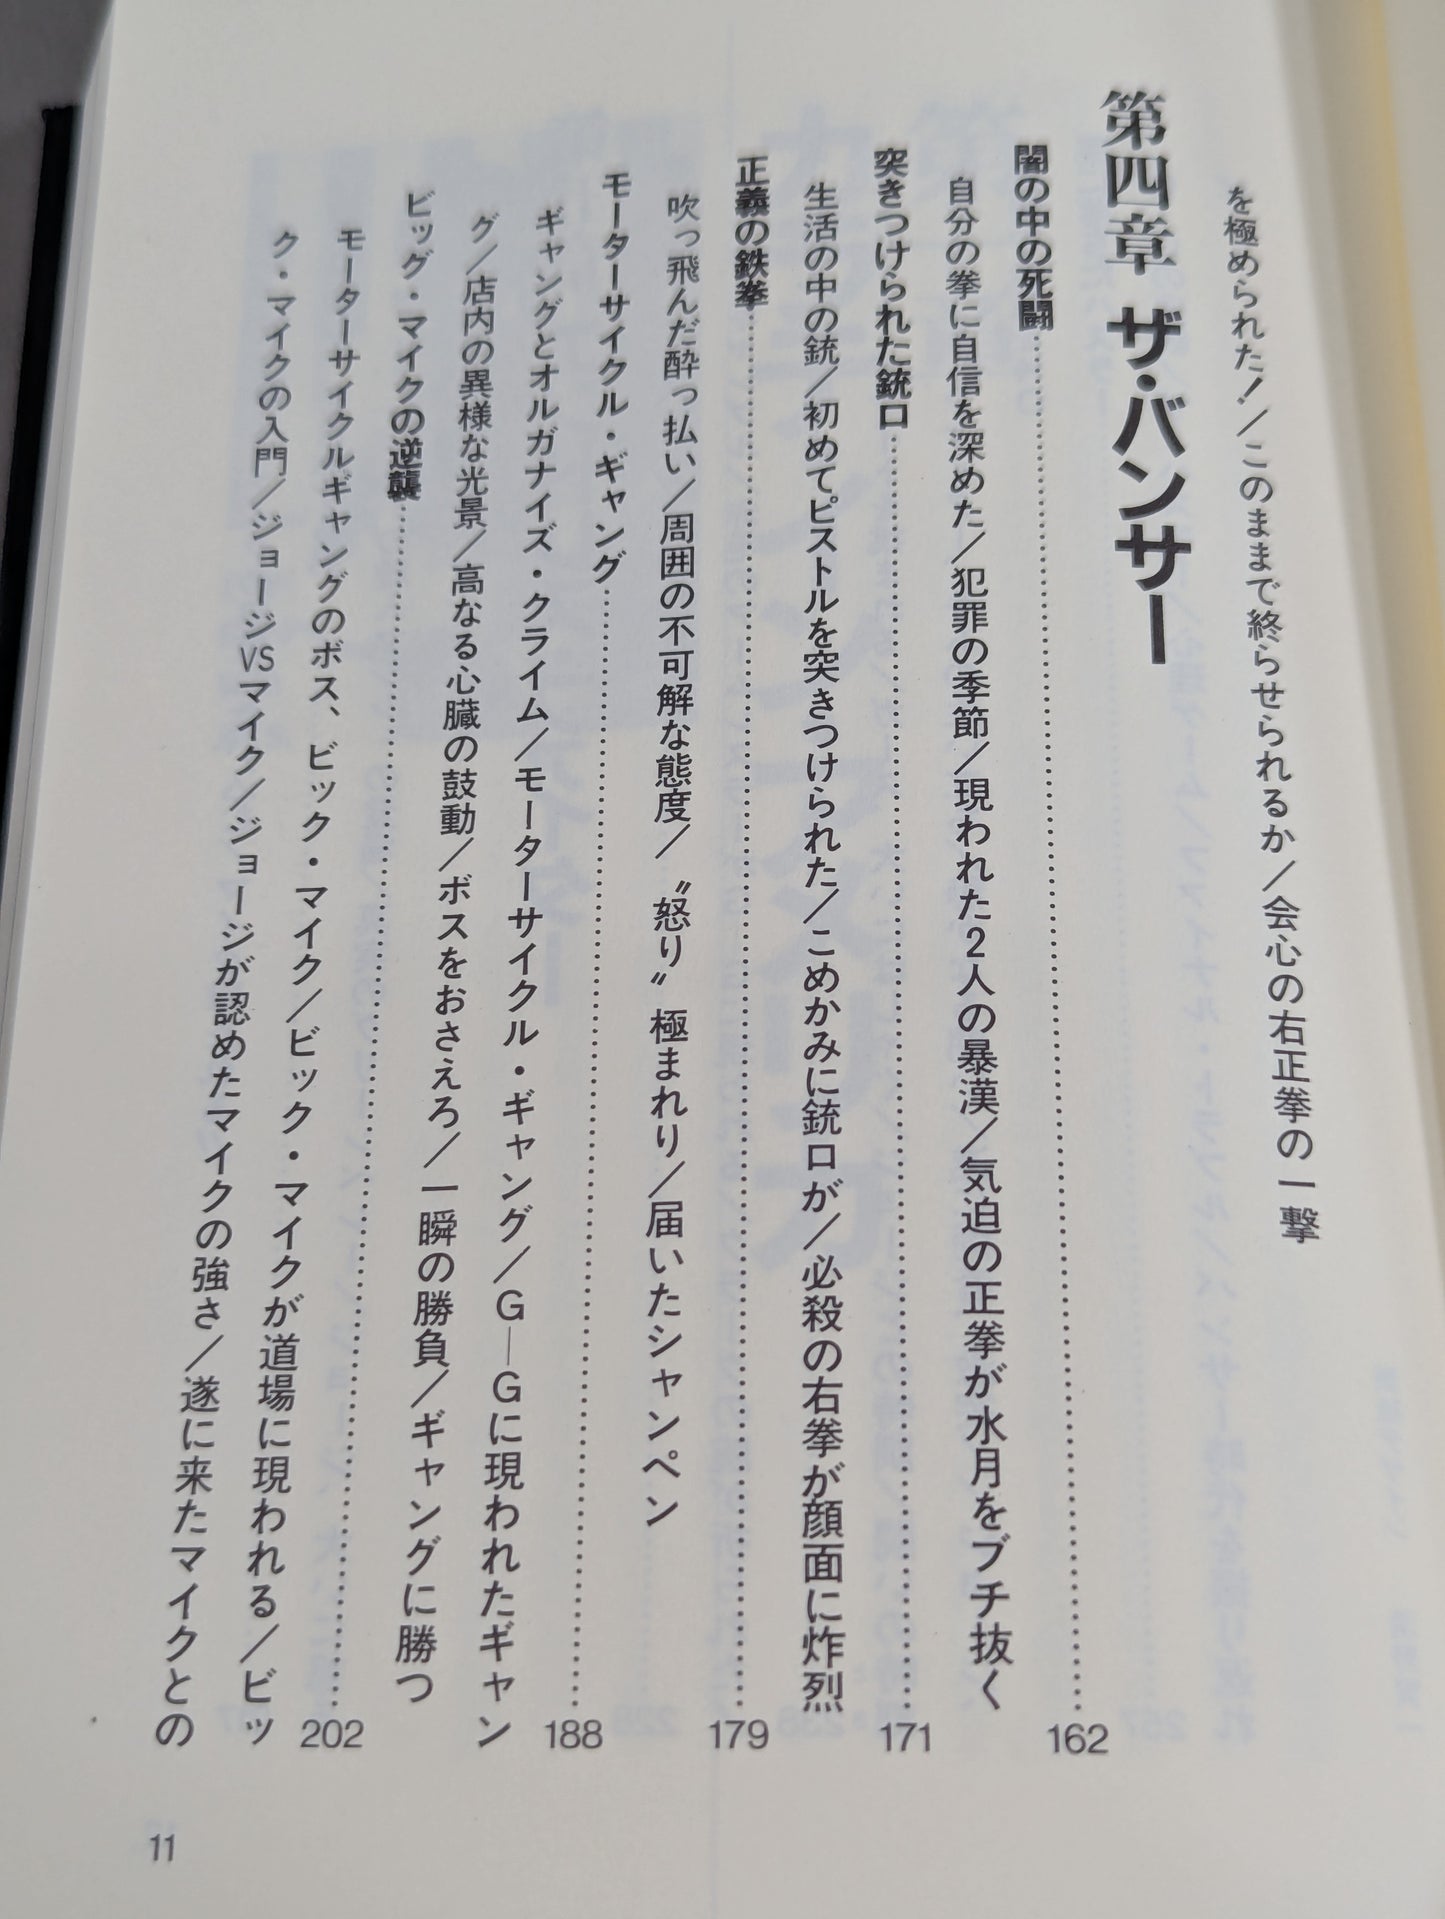 を極められた！／このままで終らせられるか／会心の右正拳の一撃
第四章 ザ・バンサー
闇の中の死闘……………………162
自分の拳に自信を深めた／犯罪の季節／現われた2人の暴漢／気迫の正拳が水月をブチ抜く
突きつけられた銃口……………………171
生活の中の銃／初めてピストルを突きつけられた／こめかみに銃口が／必殺の右拳が顔面に炸烈
正義の鉄拳……………………179
吹っ飛んだ酔っ払い／周囲の不可解な態度／〝怒り〟極まれり／届いたシャンペン
モーターサイクル・ギャング……………………188
ギャングとオルガナイズ・クライム／モーターサイクル・ギャング／G—Gに現われたギャン
グ／店内の異様な光景／高なる心臓の鼓動／ボスをおさえろ／一瞬の勝負／ギャングに勝つ
ビッグ・マイクの逆襲……………………202
モーターサイクルギャングのボス、ビック・マイク／ビック・マイクが道場に現われる／ビッ
ク・マイクの入門／ジョージVSマイク／ジョージが認めたマイクの強さ／遂に来たマイクとの
11